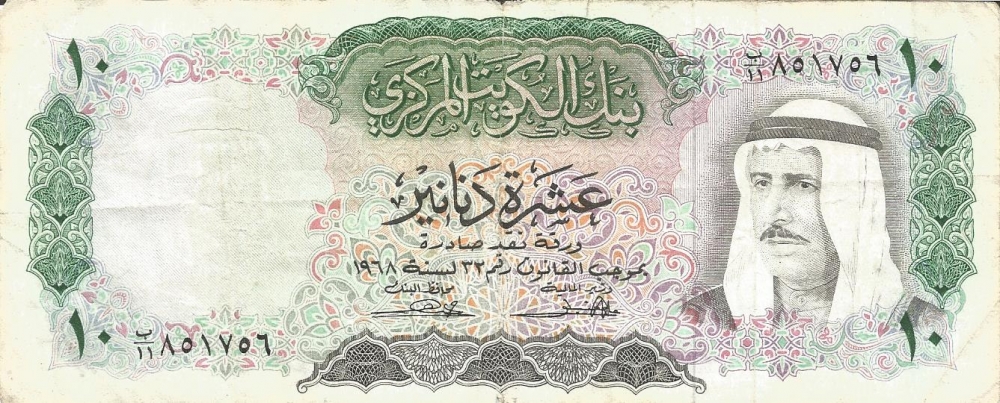 ١٠ ب/١١ ٨٥١٧٥٦ ١٠
بنك الكويت المركزي
عشرة دنانير
ورقة نقد صادرة
بموجب القانون رقم ٣٢ لسنة ١٩٦٨
وزير المالية محافظ البنك
١٠ ب/١١ ٨٥١٧٥٦ ١٠